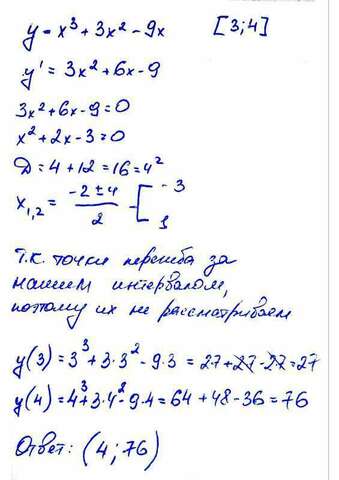 y = x³ + 3x² - 9x [3;4]
y' = 3x² + 6x - 9
3x² + 6x - 9 = 0
x² + 2x - 3 = 0
Д = 4 + 12 = 16 = 4²
x₁,₂ = (-2 ± 4)/2 [ -3
1
Т.к. точки перегиба за
нашим интервалом,
поэтому их не рассматриваем
y(3) = 3³ + 3·3² - 9·3 = 27 + 27 - 27 = 27
y(4) = 4³ + 3·4² - 9·4 = 64 + 48 - 36 = 76
Ответ: (4; 76)